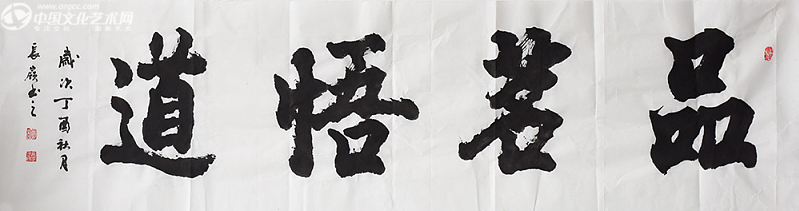 品茗悟道
歲次丁酉秋月
長嶺书之
中国文化艺术网
www.orgcc.com